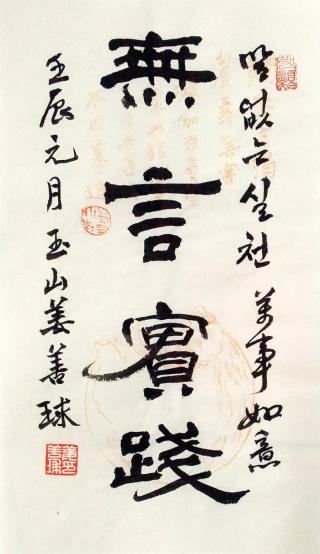 말없는실천 萬事如意
無言實踐
壬辰元月玉山姜善球